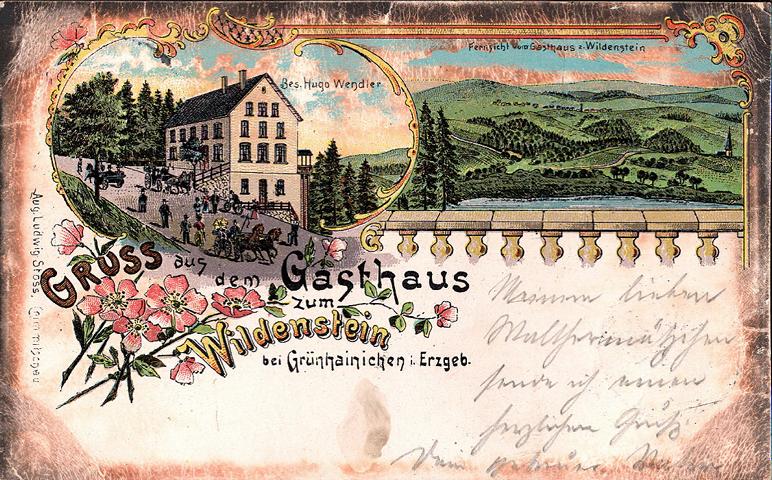 Fernsicht vom Gasthaus z. Wildenstein
Bes. Hugo Wendler
Gruss aus dem Gasthaus
zum
Wildenstein
bei Grünhainichen i. Erzgeb.
Aug. Ludwig Stöss,
lieben
sende ich einen
herzlichen Gruß
Dein